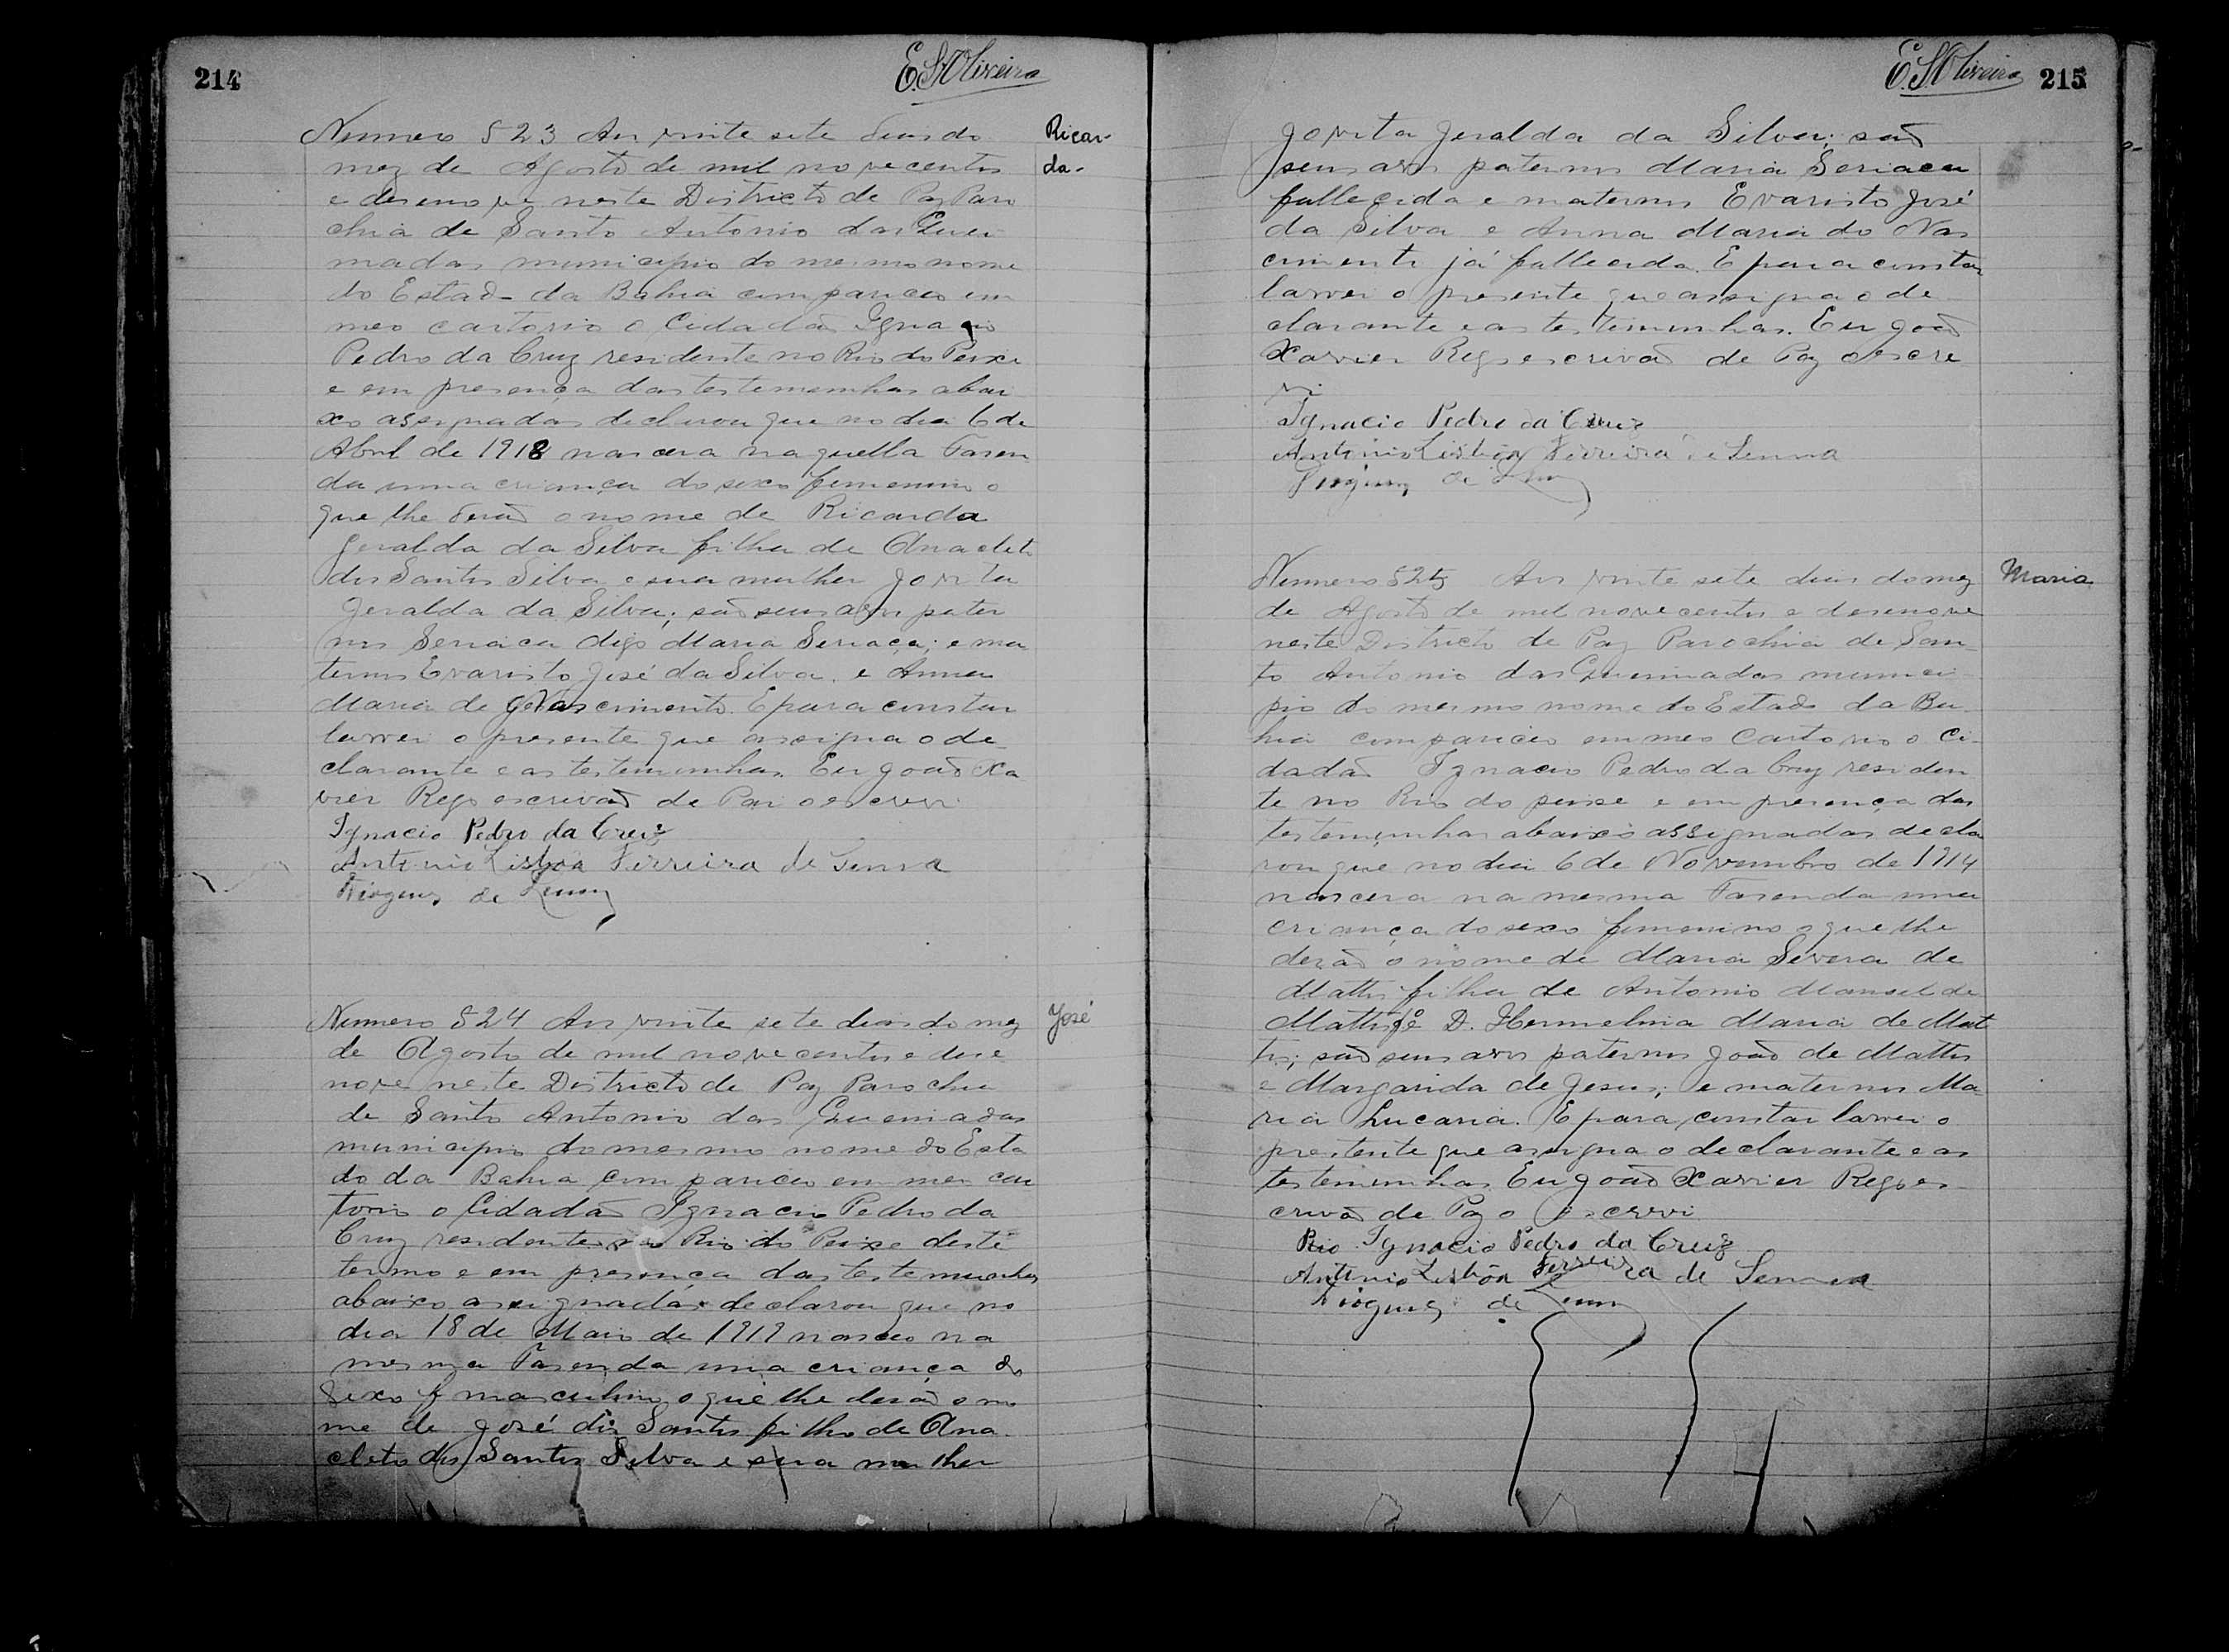 214
E. S. Oliveira
Numero 523 Aos vinte sete dias do
mez de Agosto de mil novecentos
e desenove neste Districto de Paz Paro
chia de Santo Antonio das Quei
madas municipio do mesmo nome
do Estado da Bahia compareceo em
meo cartorio o Cidadão Ignacio
Pedro da Cruz residente no Rio do Peixe
e em presença das testemunhas abai
xo assignadas declarou que no dia 6 de
Abril de 1918 nascera naquella Fasen
da uma criança do sexo femenino o
que lhe derão o nome de Ricarda
Geralda da Silva filha de Anacleto
dos Santos Silva e sua mulher Jovita
Geralda da Silva; são seus avos pater
nos Seriaca digo Maria Seriaca; e ma
ternos Evaristo José da Silva e Anna
Maria de Nascimento. E para constar
lavrei o presente que assigna o de
clarante e as testemunhas. Eu João Xa
vier Rego escrivão de Paz o escrevi
Ignacio Pedro da Cruz
Antonio Lisbôa Ferreira de Senna
de
Ricar
da.
Numero 524 Aos vinte sete dias do mez
de Agosto de mil novecentos e dese
nove neste Districto de Paz Parochia
de Santo Antonio das Queimadas
municipio do mesmo nome do Esta
do da Bahia compareceo em meo car
torio o Cidadão Ignacio Pedro da
Cruz residente no Rio do Peixe deste
termo e em presença das testemunhas
abaixo assignadas declarou que no
dia 18 de Maio de 1919 nasceo na
mesma Fasenda uma criança do
sexo f masculino o que lhe derão o no
me de José dos Santos filho de Ana
cleto dos Santos Silva e sua mulher
José
E. S. Oliveira
215
Jovita Geralda da Silva; são
seus avos paternos Maria Seriaca
fallecida e maternos Evaristo José
da Silva e Anna Maria do Nas
cimento já fallecida. E para constar
lavrei o presente que assigna o de
clarante e as testemunhas. Eu João
Xavier Rego escrivão de Paz o escre
vi.
Ignacio Pedro da Cruz
Antonio Lisbôa Ferreira de Senna
de
Numero 525 Aos vinte sete dias do mez
de Agosto de mil novecentos e desenove
neste Districto de Paz Parochia de San
to Antonio das Queimadas munici
pio do mesmo nome do Estado da Ba
hia compareceo em meo Cartorio o Ci
dadão Ignacio Pedro da Cruz residen
te no Rio do peixe e em presença das
testemunhas abaixo assignadas decla
rou que no dia 6 de Novembro de 1914
nascera na mesma Fasenda uma
criança do sexo femenino o que lhe
derão o nome de Maria Severa de
Mattos filha de Antonio Manoel de
Mattos e D. Hermelina Maria de Mat
tos; são seus avos paternos João de Mattos
e Margarida de Jesus; e maternos Ma
ria Lucaria. E para constar lavrei o
presente que assigna o declarante e as
testemunhas. Eu João Xavier Rego es
crivão de Paz o escrevi
Rio Ignacio Pedro da Cruz
Antonio Lisbôa Ferreira de Senna
de
Maria